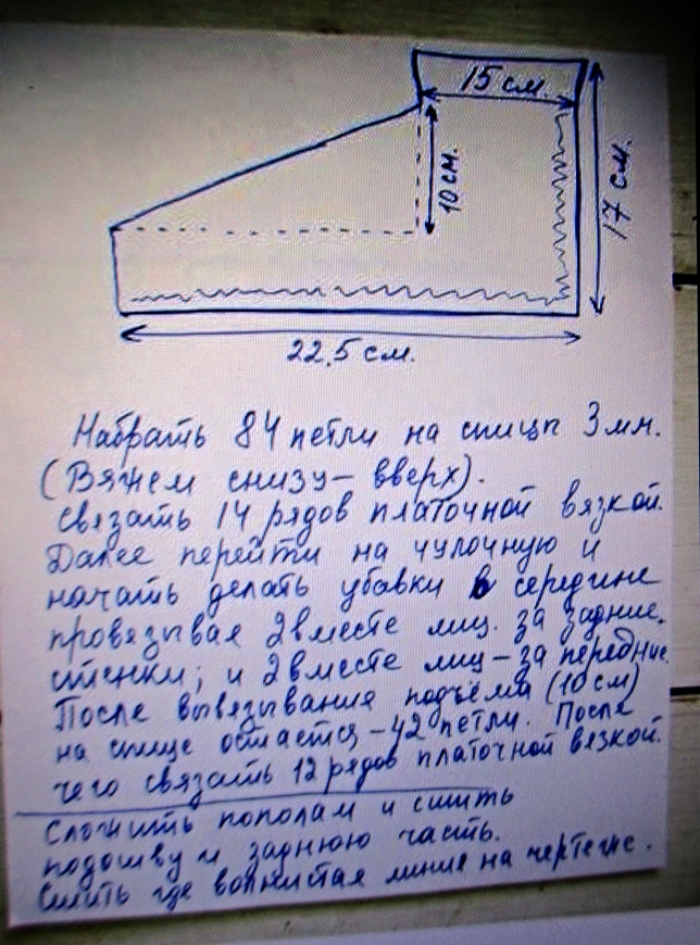 15 см.
10 см.
17 см.
22,5 см.
Набрать 84 петли на спицы 3 мм.
(Вяжем снизу – вверх).
Связать 14 рядов платочной вязкой.
Далее перейти на чулочную и
начать делать убавки в середине
провязывая 2 вместе лиц. за задние.
стенки; и 2 вместе лиц – за передние.
После вывязывания подъёма (10 см)
на спице остаётся – 42 петли. После
чего связать 12 рядов платочной вязкой.
Сложить пополам и сшить
подошву и заднюю часть.
Сшить где волнистая линия на чертеже.